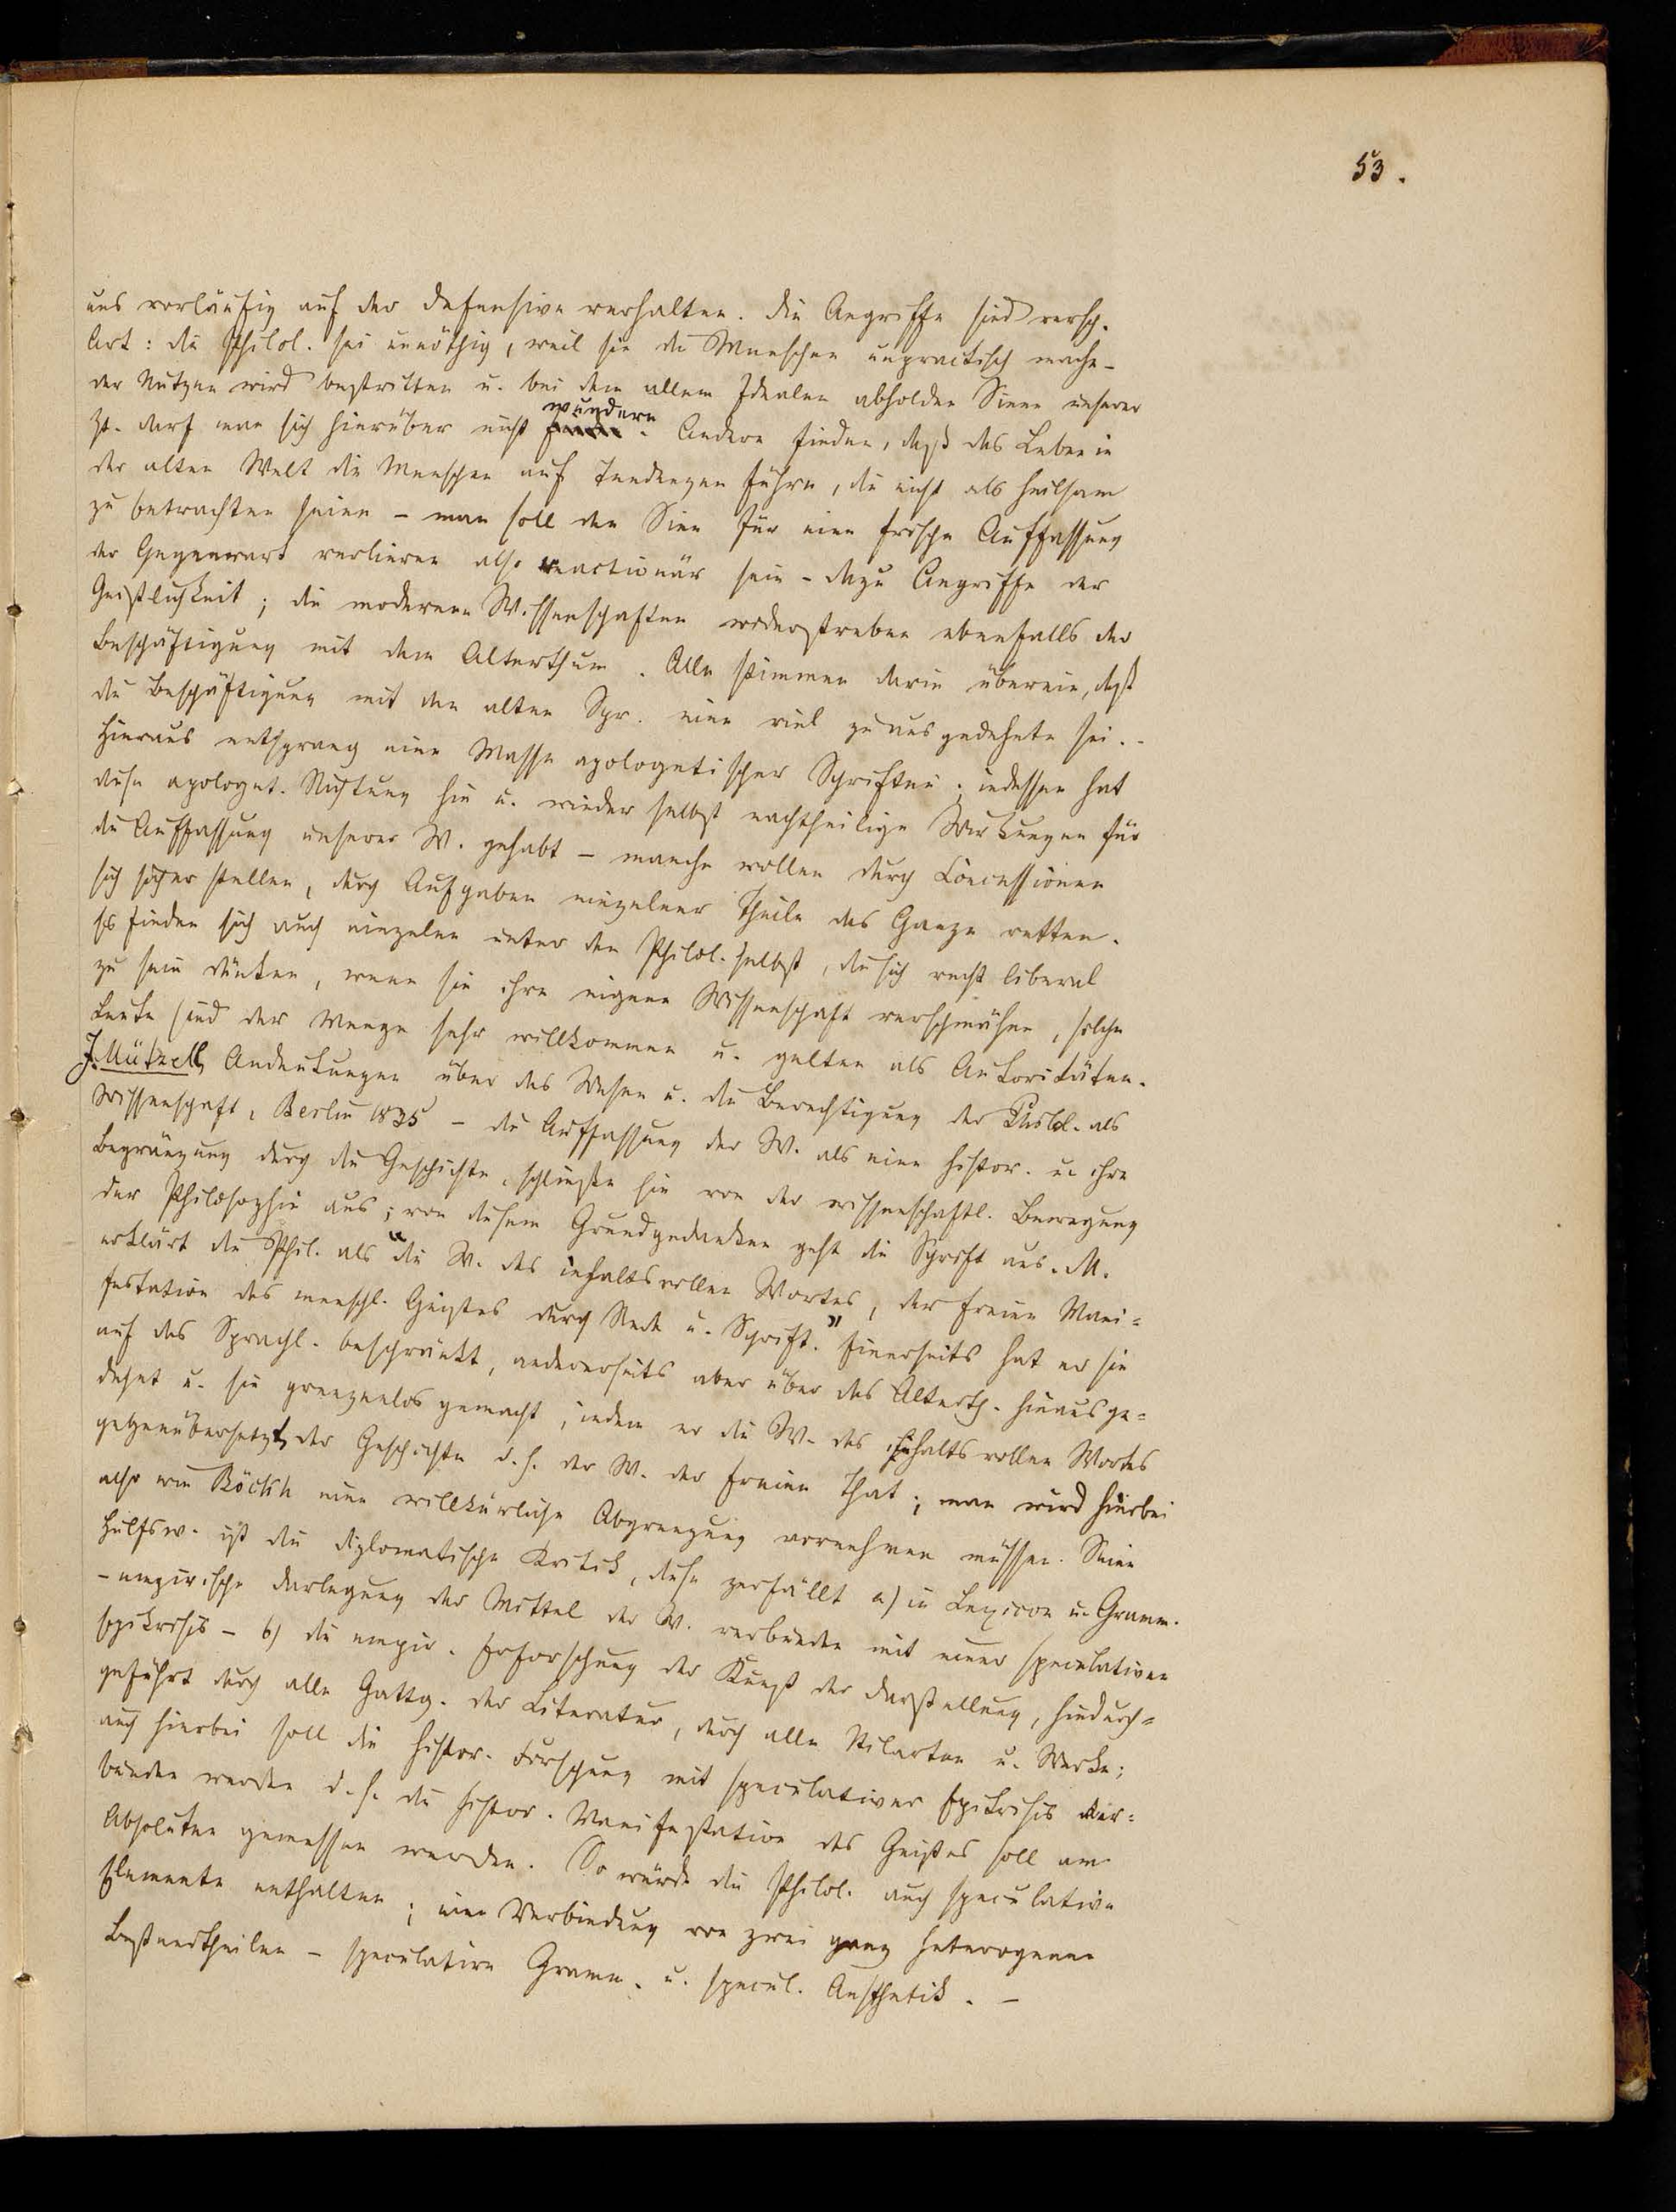 53.
uns vorläufig auf der Defensive verhalten. Die Angriffe sind versch.
Art: die Philol. sei unnöthig, weil sie die Menschen unpractisch mache -
der Nutzen wird bestritten u. bei dem allem Idealen abholden Sinne unserer
Zt. darf man sich hierüber nicht wundern. Andere finden, daß das Leben in
der alten Welt die Menschen auf Tendenzen führe, die nicht als heilsam
zu betrachten seien - man soll den Sinn für eine frische Auffassung
der Gegenwart verlieren also reactionär sein - dazu Angriffe der
Geistlichkeit; die modernen Wissenschaften widerstreben ebenfalls der
Beschäftigung mit dem Alterthum. Alle stimmen darin überein, daß
die Beschäftigung mit den alten Spr. eine viel zu ausgedehnte sei. -
Hieraus entsprang eine Masse apologetischer Schriften; indessen hat
diese apologet. Richtung hie u. wieder selbst nachtheilige Wirkungen für
die Auffassung unserer W. gehabt - manche wollen durch Concessionen
sich sicher stellen, durch Aufgaben einzelner Theile das Ganze retten.
Es finden sich auch einzelne unter den Philol. selbst, die sich recht liberal
zu sein dünken, wenn sie ihre eigene Wissenschaft verschmähen, solche
Leute sind der Menge sehr willkommen u. gelten als Autoritäten.
J. Mützell, Andeutungen über das Wesen u. die Berechtigung der Philol. als
Wissenschaft, Berlin 1835 - die Auffassung der W. als eine histor. u. ihre
Begränzung durch die Geschichte, schließe sie von der wissenschaftl. Bewegung
der Philosophie aus; von diesem Grundgedanken geht die Schrift aus. M.
erklärt die Phil. als "die W. des inhaltsvollen Wortes, der freien Mani=
festation des menschl. Geistes durch Rede u. Schrift." Einerseits hat er sie
auf das Sprachl. beschränkt, andererseits aber über das Alterth. hinausge=
dehnt u. sie grenzenlos gemacht, indem er die W. des inhaltsvollen Wortes
gegenübersetzt der Geschichte d. h. der W. der freien That; man wird hierbei
also wie Böckh eine willkürliche Abgrenzung vornehmen müssen. Seine
Hülfsw. ist die diplomatische Kritik, diese zerfällt a) in Lexicon u. Gramm.
- empirische Darlegung der Mittel der W. verbunden mit einer speculativen
Epikrisis - b) die empir. Erforschung der Kunst der Darstellung, hindurch=
geführt durch alle Gattg. der Literatur, durch alle Stilarten u. Werke;
auch hierbei soll die histor. Forschung mit speculativer Epikrisis ver=
bunden werden d. h. die histor. Manifestation des Geistes soll am
Absoluten gemessen werden. So würde die Philol. auch speculative
Elemente enthalten; eine Verbindung von zwei ganz heterogenen
Bestandtheilen - speculative Gramm. u. specul. Aesthetik. -